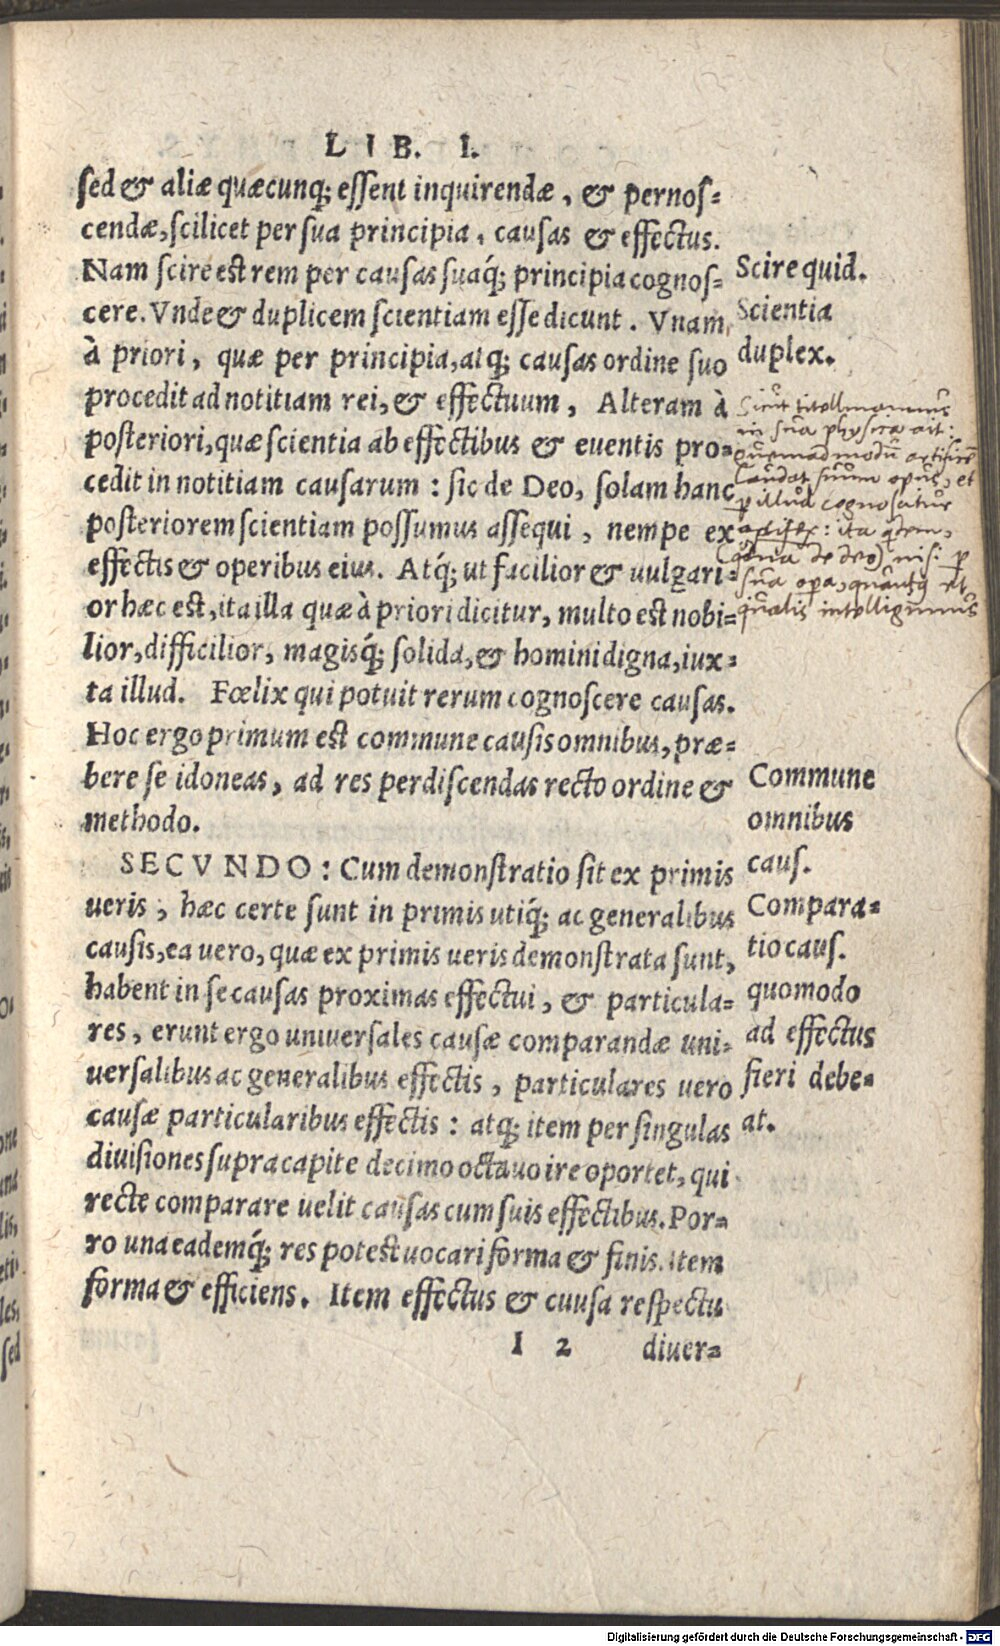 LIB. I.
sed & aliæ quæcunq; essent inquirendæ, & pernos-
cendæ, scilicet per sua principia, causas & effectus.
Nam scire est rem per causas suaq́; principia cognos-
cere. Vnde & duplicem scientiam esse dicunt. Vnam
à priori, quæ per principia, atq; causas ordine suo
procedit ad notitiam rei, & effectuum, Alteram à
posteriori, quæ scientia ab effectibus & euentis pro-
cedit in notitiam causarum: sic de Deo, solam hanc
posteriorem scientiam possumus assequi, nempe ex
effectis & operibus eius. Atq́; ut facilior & uulgari-
or hæc est, ita illa quæ à priori dicitur, multo est nobi-
lior, difficilior, magisq́; solida, & homini digna, iux-
ta illud. Fœlix qui potuit rerum cognoscere causas.
Hoc ergo primum est commune causis omnibus, præ-
bere se idoneas, ad res perdiscendas recto ordine &
methodo.
SECVNDO: Cum demonstratio sit ex primis
ueris, hæc certe sunt in primis utiq́; ac generalibus
causis, ea vero, quæ ex primis ueris demonstrata sunt,
habent in se causas proximas effectui, & particula-
res, erunt ergo uniuersales causæ comparandæ uni-
uersalibus ac generalibus effectis, particulares uero
causæ particularibus effectis: atq; item per singulas
diuisiones supra capite decimooctauo ire oportet, qui
recte comparare uelit causas cum suis effectibus. Por-
ro una eademq́; res potest uocari forma & finis. Item
forma & efficiens. Item effectus & cuusa respectu
I 2 diuer-
Scire quid.
Scientia
duplex.
Sicut titelmannus
in sua physica ait:
quemadmodū artificē
laudat suum opus, et
p illud cognoscitur
artifex: ita
de deo) nisi p
sua opa,
qualis intelligimus
Commune
omnibus
caus.
Compara-
tio caus.
quomodo
ad effectus
fieri debe-
at.
Digitalisierung gefördert durch die Deutsche Forschungsgemeinschaft - DFG